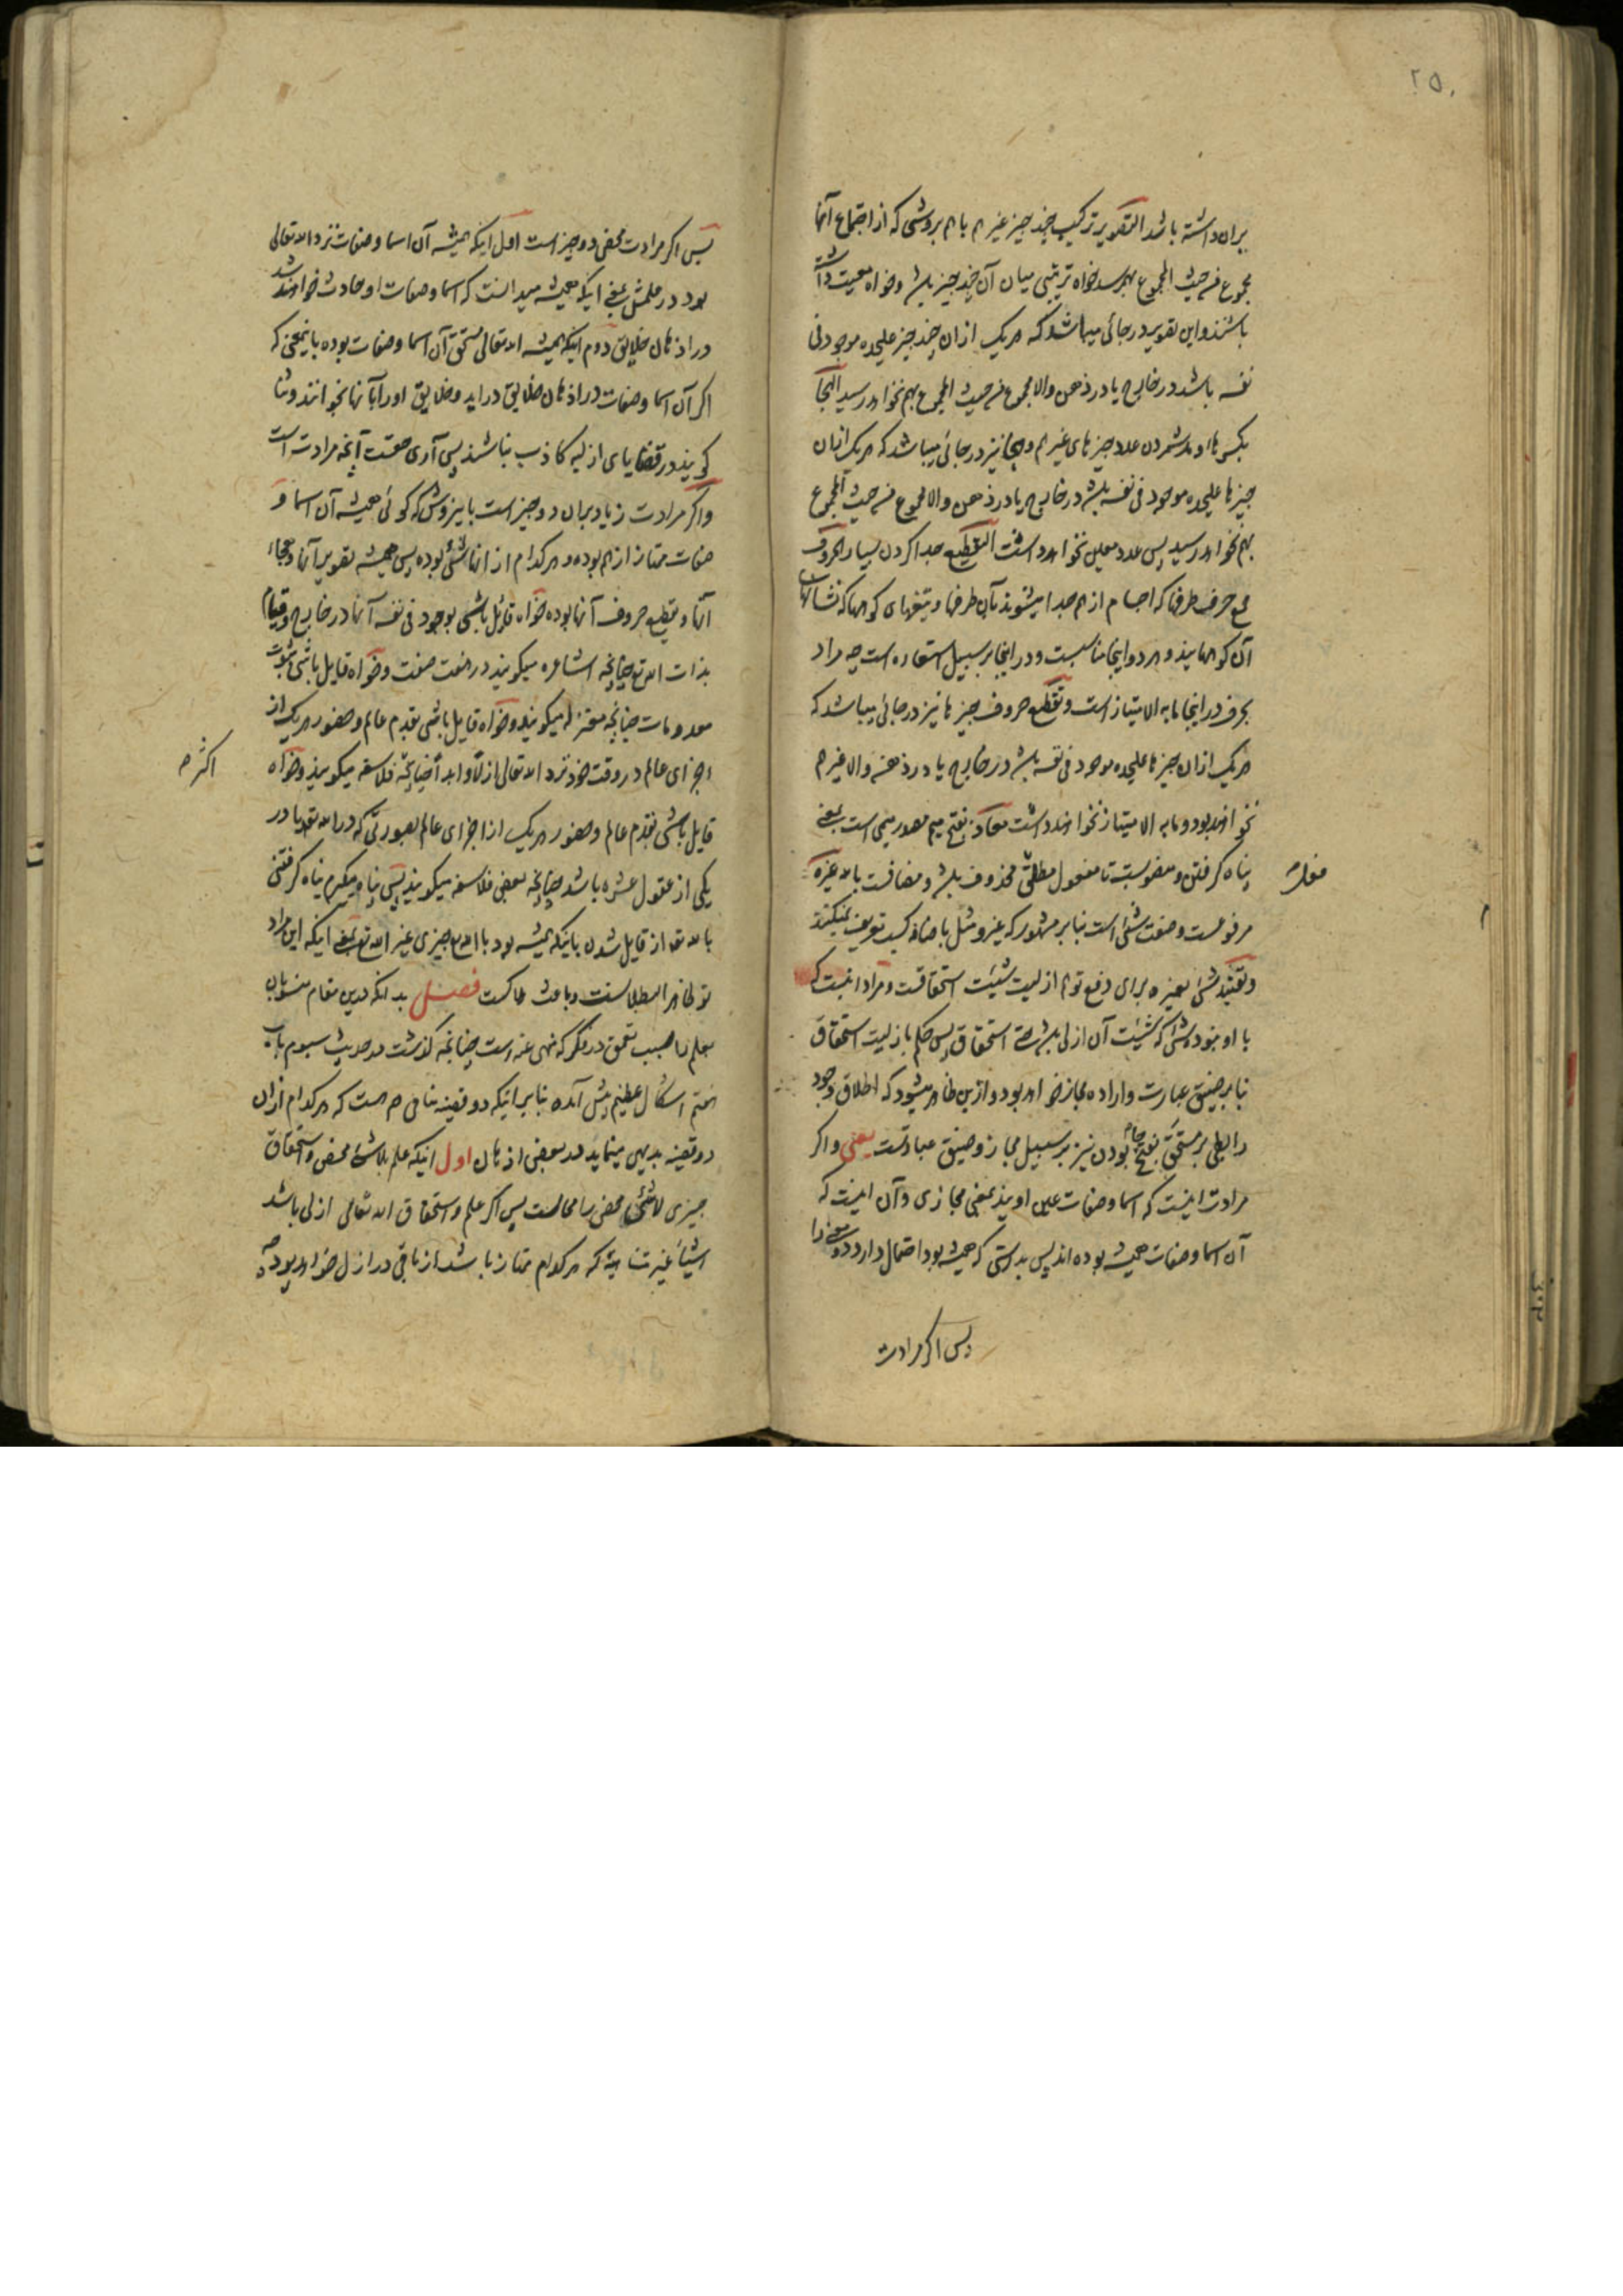 ۲۵۰
بران داشته باشد التصویر ترکیب چند چیز غیر هم با هم بروشی که از اجتماع آنها
مجموع من حیث المجموع بهم رسد خواه ترتیبی میان آن چند چیز باشد و خواه معیت داشته
باشند و این تصویر در جائی میباشد که هر یک ازان چند چیز علیحده موجود فی
نفسه باشد در خارج یا در ذهن والا مجموع من حیث المجموع بهم نخواهد رسید الهجآ
بکسر ها و مد شمردن عدد چیزهای غیر هم و هجا نیز در جائی میباشد که هر یک ازان
چیزها علیحده موجود فی نفسه باشد در خارج یا در ذهن والا مجموع من حیث المجموع
بهم نخواهد رسید پس عدد معین نخواهد داشت التقطیع جدا کردن بسیار الحروف
جمع حرف طرفها که اجسام از هم جدا میشوند بآن طرفها و تیغهای کوهها که نشانهای
آن کوههایند و هر دو اینجا مناسبت و در اینجا بر سبیل استعاره است چه مراد
بحرف در اینجا مابه الامتیاز است و تقطیع حروف چیزها نیز در جائی میباشد که
هر یک ازان چیزها علیحده موجود فی نفسه باشد در خارج یا در ذهن والا غیر هم
نخواهند بود و مابه الامتیاز نخواهند داشت معاذ بفتح میم مصدر میمی است بمعنی
پناه گرفتن و منصوبست تا مفعول مطلق محذوف باشد و مضافست بالله غیره
مرفوعست و صفت شیء است بنابر مشهور که غیر و مثل باضافه کسب تعریف نمیکنند
و تقیید شیء بغیره برای دفع توهم ازلیت شیئیت استحقاقست و مراد اینست که
با او نبوده شیء که شیئیت آن ازلی باشد حتی استحقاق پس حکم بازلیت استحقاق
بنابر ضیق عبارت و اراده مجاز خواهد بود و ازین ظاهر میشود که اطلاق وجود
رابطی بر مستحق بفتح حاء بودن نیز بر سبیل مجاز و ضیق عبارتست یعنی و اگر
مرادت اینست که اسما و صفات عین اویند بمعنی مجازی و آن اینست که
آن اسما و صفات همیشه بوده اند پس بدرستی که همیشه بود احتمال دارد دو معنی را
پس اگر مرادت
پس اگر مرادت محض دو چیز است اول اینکه همیشه آن اسما و صفات نزد الله تعالی
بود در علمش یعنی اینکه همیشه میدانست که اسما و صفات او حادث خواهند شد
در اذهان خلایق دوم اینکه همیشه الله تعالی مستحق آن اسما و صفات بوده باینمعنی که
اگر آن اسما و صفات در اذهان خلایق دراید و خلایق او را بآنها بخوانند و ثنا
گویند در قضایای ازلیه کاذب نباشند پس آری حقست آنچه مرادت است
و اگر مرادت زیاد بران دو چیز است باینروش که گوئی همیشه آن اسما و
صفات ممتاز از هم بوده و هر کدام از انها شئی بوده پس همیشه تصویر آنها و هجاء
آنها و تقطیع حروف آنها بوده خواه قائل باشی بوجود فی نفسه آنها در خارج و قیام
بذات الله تع چنانچه اشاعره میگویند در هفت صفت و خواه قایل باشی بثبوت
معدومات چنانچه معتزله میگویند و خواه قایل باشی بقدم عالم و حضور هر یک از
اجزای عالم در وقت خود نزد الله تعالی ازلًا و ابدًا چنانچه فلاسفه میگویند و خواه
اکثر
قایل باشی بقدم عالم و حضور هر یک از اجزای عالم بصورتی که در الله تع یا در
یکی از عقول عشره باشد چنانچه بعضی فلاسفه میگویند پس پناه میگیرم پناه گرفتنی
بالله تع از قایل شدن باینکه همیشه بود با الله تع چیزی غیر الله تع بمعنی اینکه این مراد
تو ظاهر البطلانست و باعث هلاکست فصل بدانکه درین مقام منسوبان
بعلم را بسبب تعمق در فکر که منهی عنه است چنانچه گذشت در حدیث سیوم باب
هفتم اشکال عظیم پیش آمده بنابر اینکه دو قضیه منافی هم هست که هر کدام ازان
دو قضیه بدیهی مینماید در بعضی اذهان اول اینکه علم بلاشیء محض و استحقاق
چیزی لاشیء محض را محالست پس اگر علم و استحقاق الله تعالی ازلی باشد
اشیآء غیر متناهیه که هر کدام ممتاز باشد از باقی در ازل خواهد بود چه